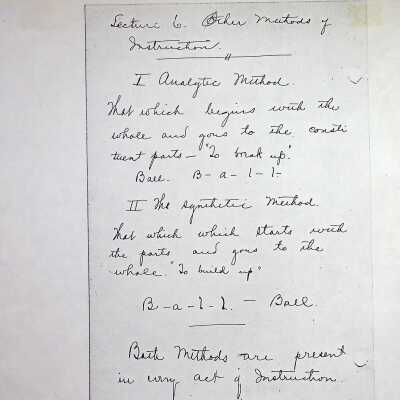 Lecture 6. Other Methods of
Instruction.
I Analytic Method.
That which begins with the
whole and goes to the consti
tuent parts - "To break up."
Ball. B-a-l-l-
II The Synthetic Method.
That which which starts with
the parts and goes to the
whole. "To build up"
B-a-l-l. - Ball.
Both Methods are present
in every act of Instruction.